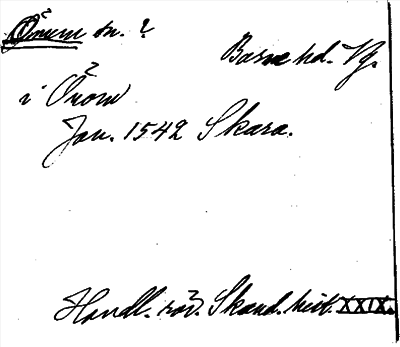 Önum sn. ?
Barne hd. Vg.
i Önom
Jan. 1542 Skara.
Handl. rör. Skand. hist. XXIX.